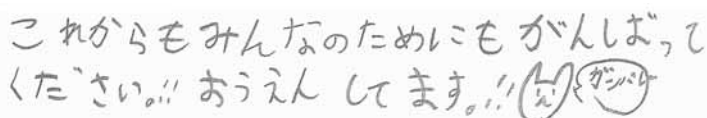 これからもみんなのためにもがんばって
ください。!! おうえんしてます。!! ガンバレ